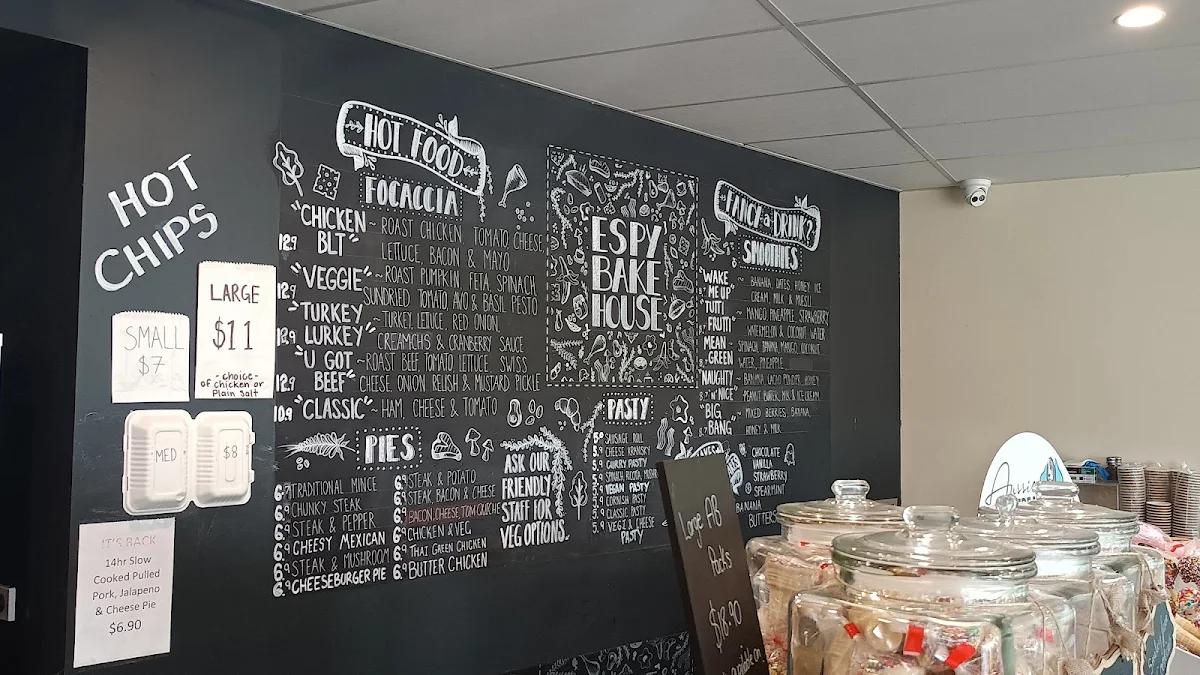 HOT
CHIPS
SMALL
$7
LARGE
$11
- choice -
of chicken or
Plain Salt
MED
$8
IT'S BACK
14hr Slow
Cooked Pulled
Pork, Jalapeno
& Cheese Pie
$6.90
HOT FOOD
FOCACCIA
12.9 "CHICKEN BLT" ~ ROAST CHICKEN, TOMATO, CHEESE,
LETTUCE, BACON & MAYO
12.9 "VEGGIE" ~ ROAST PUMPKIN, FETA, SPINACH,
SUNDRIED TOMATO AVO & BASIL PESTO
12.9 "TURKEY LURKEY" ~ TURKEY, LETTUCE, RED ONION,
CREAMCHS & CRANBERRY SAUCE
12.9 "U GOT BEEF" ~ ROAST BEEF, TOMATO, LETTUCE, SWISS
CHEESE, ONION RELISH & MUSTARD PICKLE
10.9 "CLASSIC" ~ HAM, CHEESE & TOMATO
PIES
6.9 TRADITIONAL MINCE
6.9 CHUNKY STEAK
6.9 STEAK & PEPPER
6.9 CHEESY MEXICAN
6.9 STEAK & MUSHROOM
6.9 CHEESEBURGER PIE
6.9 STEAK & POTATO
6.9 STEAK BACON & CHEESE
6.9 BACON, CHEESE, TOM QUICHE
6.9 CHICKEN & VEG
6.9 THAI GREEN CHICKEN
6.9 BUTTER CHICKEN
ASK OUR
FRIENDLY
STAFF FOR
VEG OPTIONS
ESPY
BAKE
HOUSE
PASTY
5.9 SAUSAGE ROLL
5.9 CHEESE KRANSKY
5.9 CURRY PASTY
5.9 SPINACH, RICOTTA,
5.9 VEGAN PASTY
5.9 CORNISH PASTY
5.9 CLASSIC PASTY
5.9 VEGI & CHEESE
PASTY
FANCY-a-DRINK?
SMOOTHIES
"WAKE ME UP" ~ BANANA, DATES, HONEY, ICE
CREAM, MILK & MUESLI
TUTTI FRUTTI ~ MANGO, PINEAPPLE, STRAWBERRY,
WATERMELON & COCONUT WATER
MEAN GREEN ~ SPINACH, BANANA, MANGO, COCONUT
WATER, PINEAPPLE
"NAUGHTY 'N' NICE" ~ BANANA, CACAO POWDER, HONEY,
PEANUT BUTTER, MILK & ICE CREAM
"BIG BANG" ~ MIXED BERRIES, BANANA,
HONEY & MILK
CHOCOLATE
VANILLA
STRAWBERRY
SPEARMINT
BANANA
Large AB
Packs
$18.90
available on
Aussie